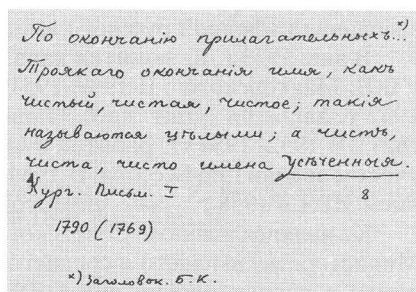 По окончанію прилагательныхъ...ˣ⁾
Троякаго окончанія имя, какъ
чистый, чистая, чистое; такія
называются цѣлыми; а чистъ,
чиста, чисто имена усѣченныя.
Кург. Письм. I 8
1790 (1769)
ˣ⁾ Заголовок. Б.К.